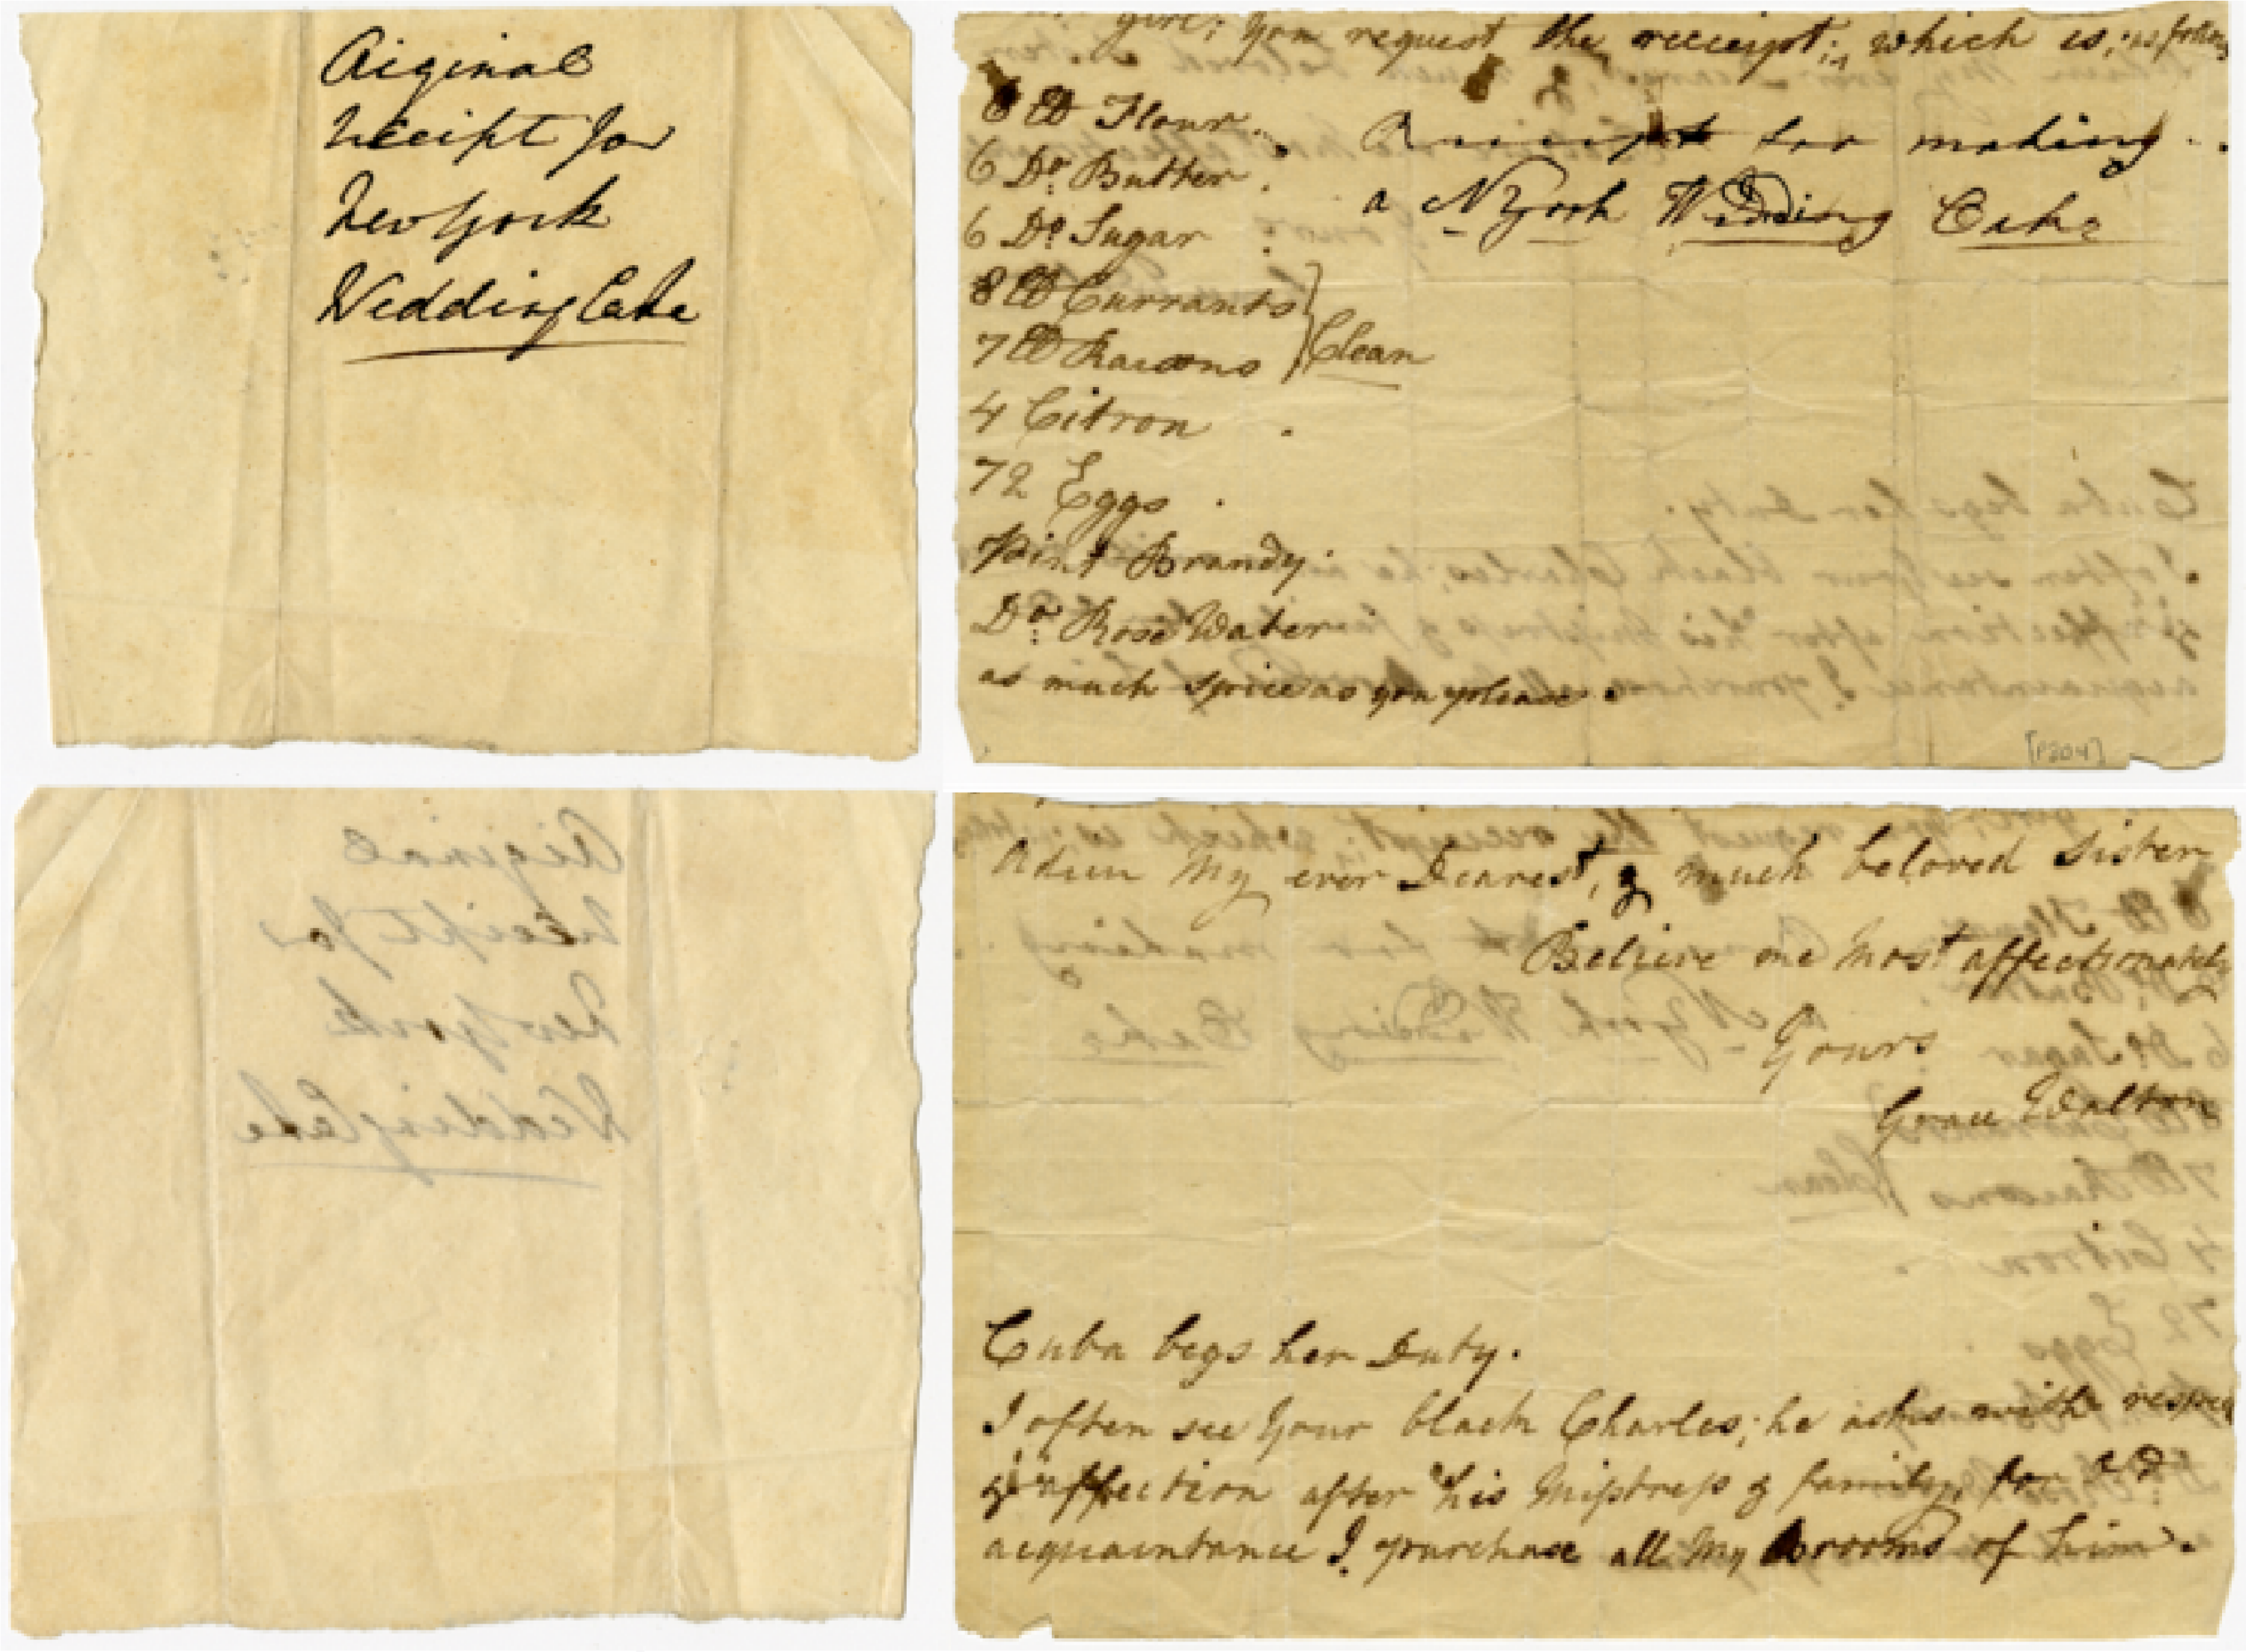 Original
receipt for
New York
Wedding Cake
give; you request the receipt; which is; as follows
8 lb Flour.
6 Do. Butter.
6 Do. Sugar
8 lb Currants
7 lb Raisons } Clean
4 Citron
72 Eggs
Pint Brandy
Do. Rose Water
as much spice as you please.
Receipt for making
a N York Wedding Cake
[P204]
Adieu My ever Dearest, & much beloved Sister
Believe me most affectionately
Yours
Grace Walton
Cuba begs her Duty.
I often see Your black Charles; he asks with respect
& affection after his Mistress & family, for old
acquaintance I purchase all My Brooms of him.